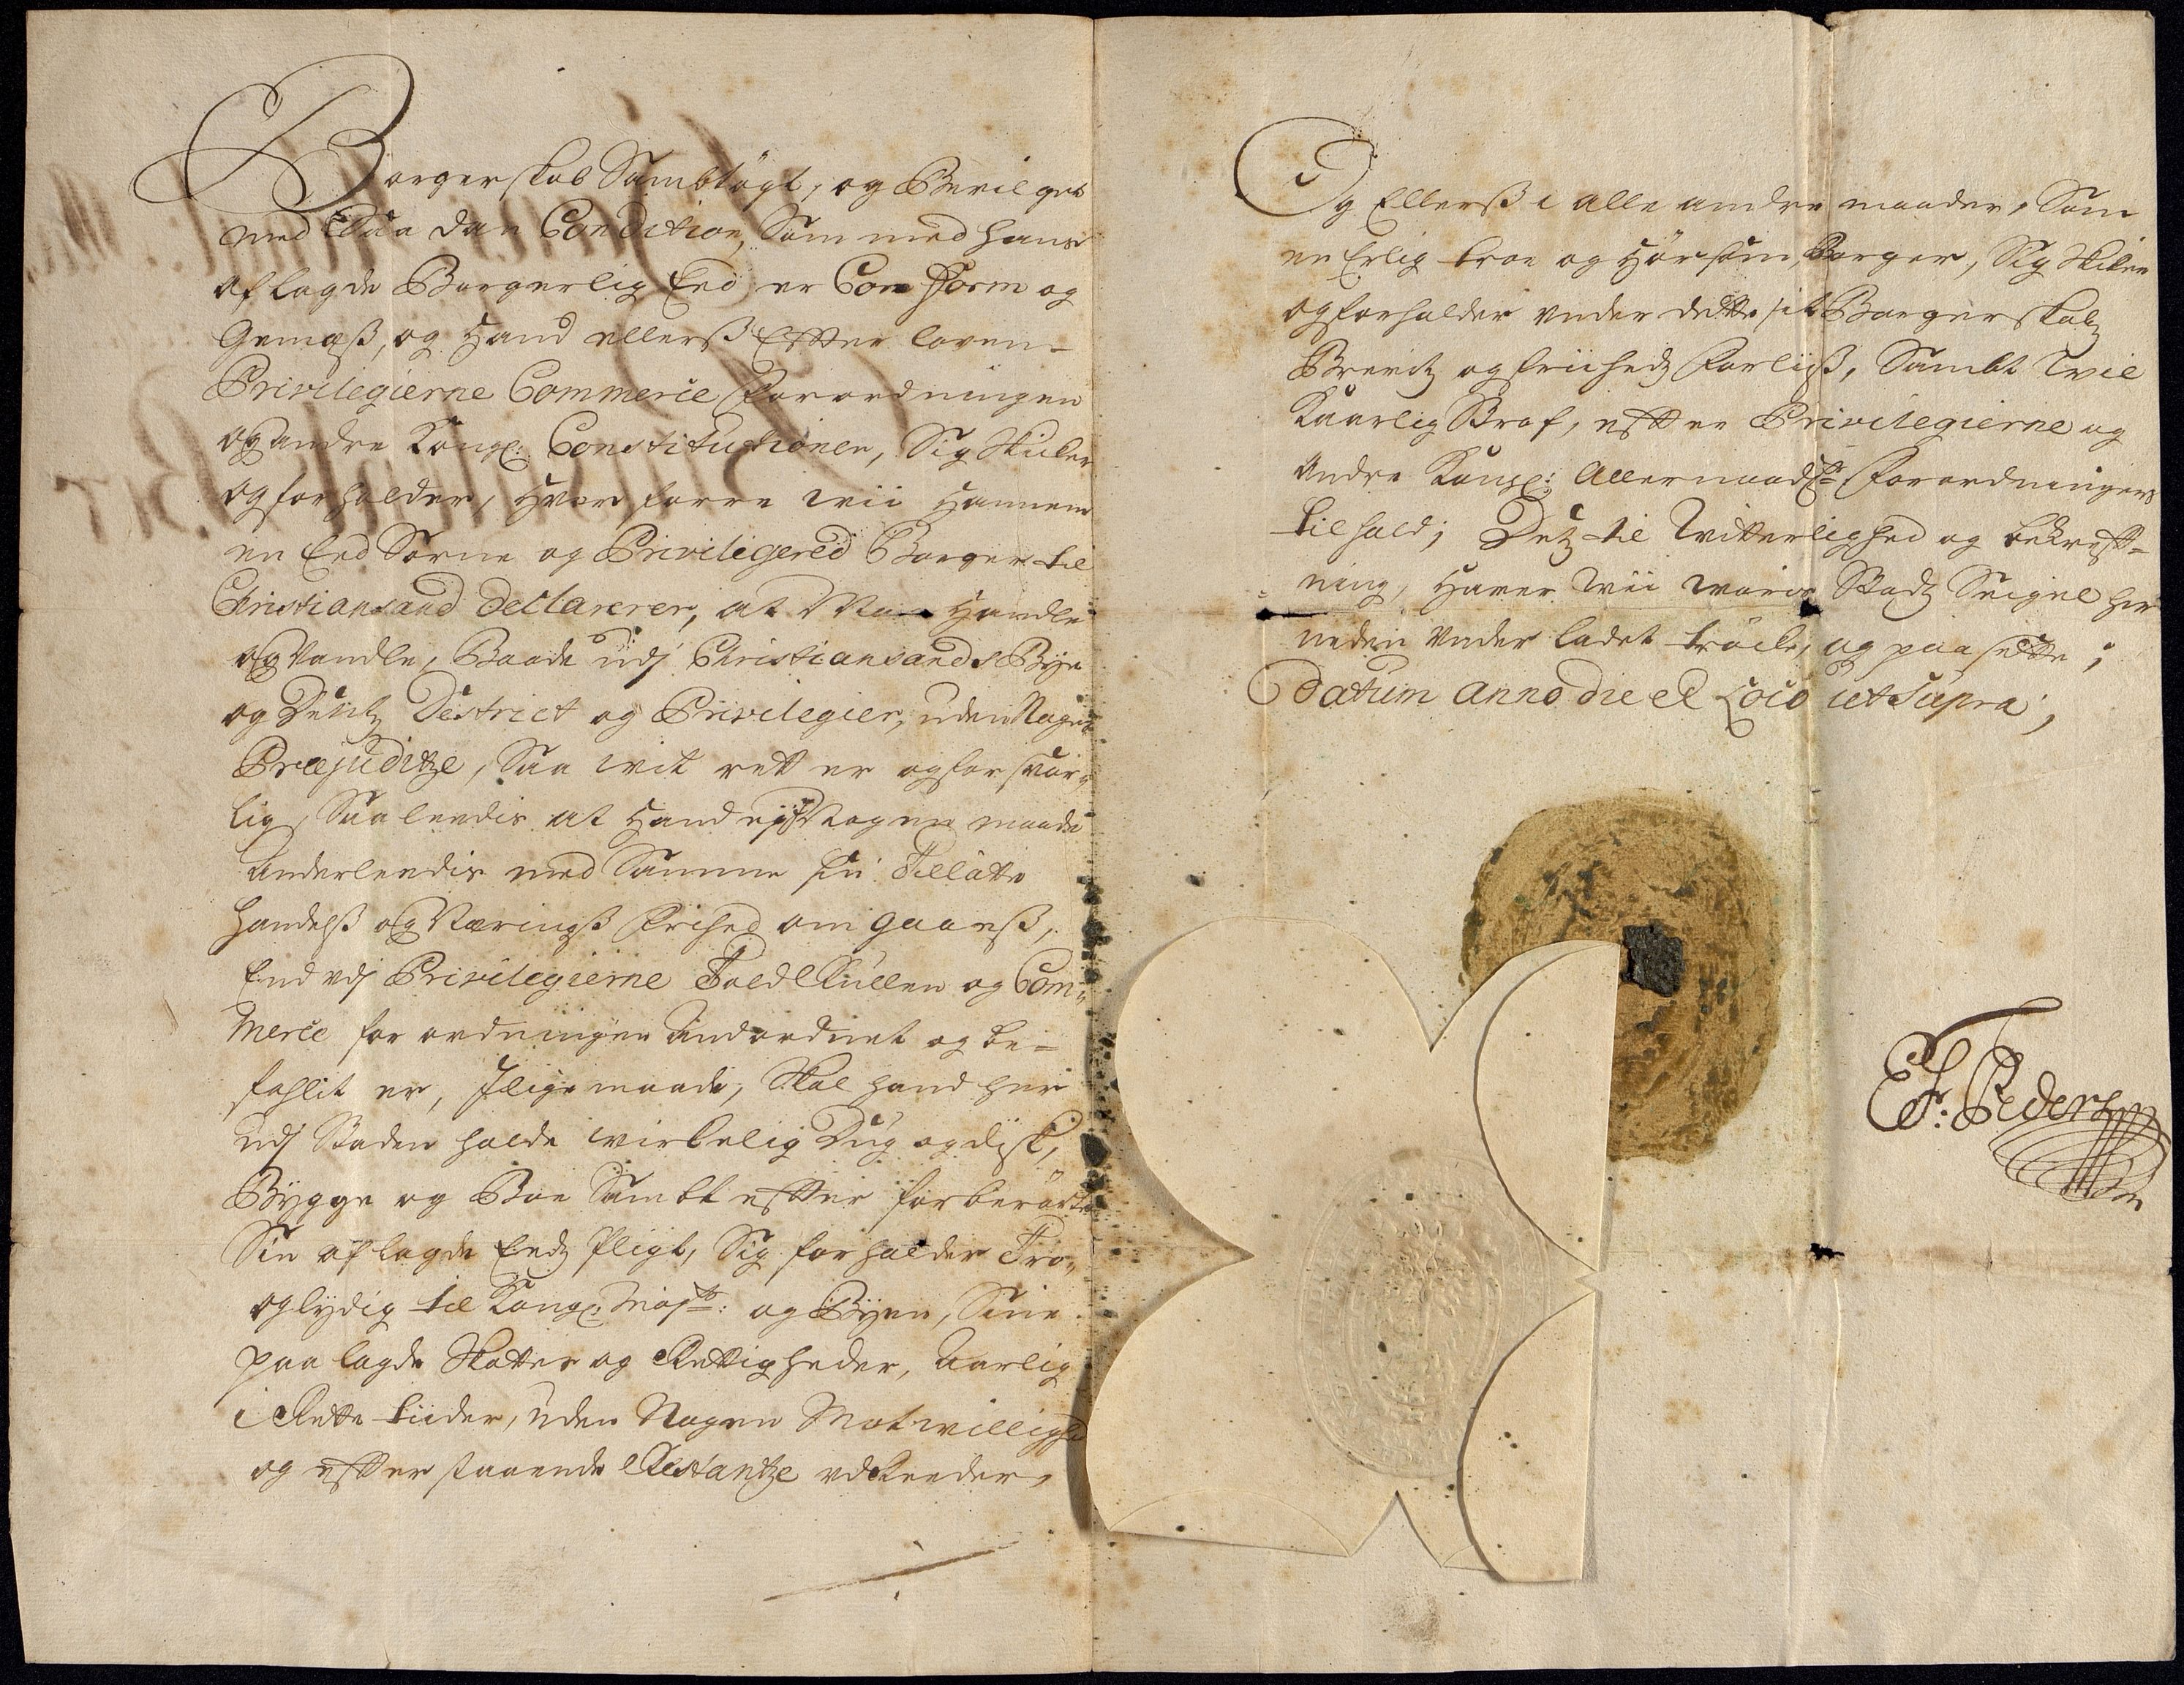 Borgerskab Sambtøgt, og Bevilget
med Saa dan Condition, Som med hans
aflagde Borgerlig Eed er Conform og
Gemæß, og Hand ellerß Effter loven
Privilegierne Commerce Forordningen
og andre Kongl: Constitutioner, Sig Skicker
og forholder, Hvor forre wii Hannem
en Eed Soren og Priviligered Borger til
Christiansand Declarerer, at Maa Handle
og Vandle, Baade udj Christiansands Bye
og Dentz District og Privilegier, uden Nogen
Præjuditze, Saa wit rett er og forsvar-
lig, Saaledis at Hand ej i Nogen maade
Anderleedis med Samme sin Tilladte
Handelß og Næringß Frihed om gaaeß,
End udj Privilegierne Told Rullen og Com-
merce forordningen Andordnet og be-
fahlit er, Jlige maade, Skal hand her
udj Staden holde wirkelig Dug og disk,
Bygge og Boe Sambt effter forberørte
Sin aflagde Eedtz Pligt, Sig forholder Tro
og lydig til Kongl: Majst: og Byen, Sine
paa lagde Skatter og Rettigheder, Aarlig
i Rette tiider, uden Nogen Motwillighed
og effter staaende Restantze udreeder,
Og Ellerß i alle andre maader, Som
en Erlig troe og Hørsom Borger, Sig Skicker
og forholder under dette sit Borgerskabtz
Brevtz og friihedtz Forliiß, Sambt Wil
kaarlig Straf, effter Privilegierne og
Andre Kongl: Allernaadste Forordningers
tilhold; Detz til Witterlighed og bekreft-
ning, Haver Wii woris Stadtz Seignel her
neden under ladet trøcke, og paa sette;
Datum Anno die et Loco ut Supra;
Ef: Pedersen